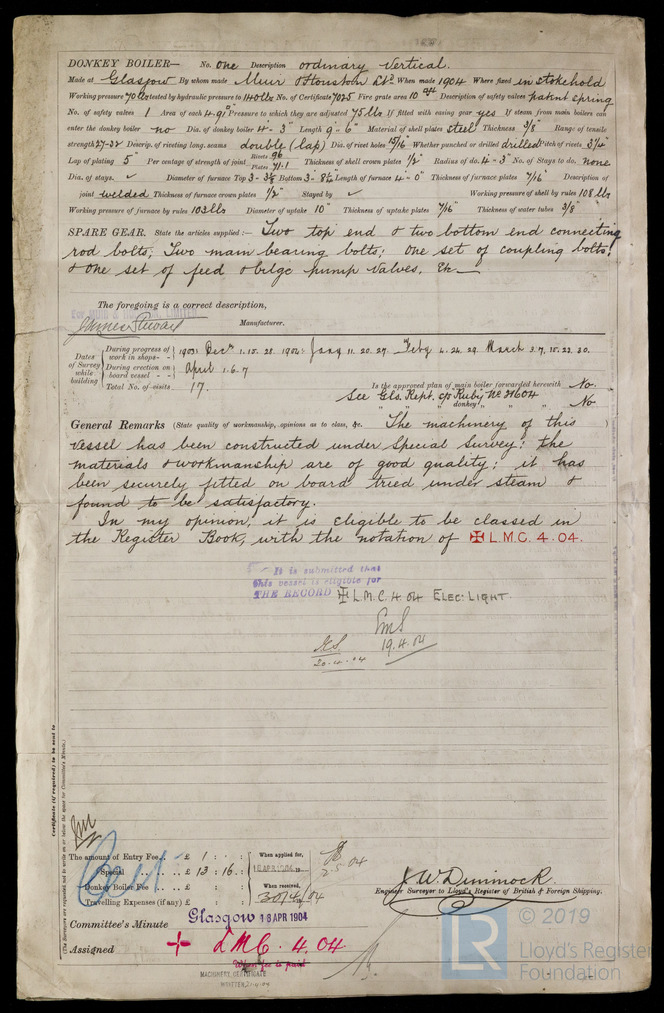 DONKEY BOILER— No. One Description ordinary vertical.
Made at Glasgow By whom made Muir & Houston Ltd When made 1904 Where fixed in stokehold
Working pressure 70 lbs tested by hydraulic pressure to 140 lbs No. of Certificate 7025 Fire grate area 10 Description of safety valves patent spring
No. of safety valves 1 Area of each 4.91" Pressure to which they are adjusted 75 lbs If fitted with easing gear yes If steam from main boilers can
enter the donkey boiler no Dia. of donkey boiler 4'- 3" Length 9'- 6" Material of shell plates steel Thickness 3/8" Range of tensile
strength 27-32 Descrip. of riveting long. seams double (lap) Dia. of rivet holes 15/16 Whether punched or drilled drilled Pitch of rivets 3 1/4"
Lap of plating 5" Per centage of strength of joint Rivets 96 Plates 71.1 Thickness of shell crown plates 1/2" Radius of do. 4-3" No. of Stays to do. none
Dia. of stays. ✓ Diameter of furnace Top Bottom Length of furnace 4'- 0" Thickness of furnace plates 7/16" Description of
joint welded Thickness of furnace crown plates 1/2" Stayed by ✓ Working pressure of shell by rules 108 lbs
Working pressure of furnace by rules 103 lbs Diameter of uptake 10" Thickness of uptake plates 7/16" Thickness of water tubes 3/8"
SPARE GEAR. State the articles supplied:— Two top end & two bottom end connecting
rod bolts; Two main bearing bolts; one set of coupling bolts;
& one set of feed & bilge pump valves. &c—
The foregoing is a correct description,
Manufacturer.
Dates of Survey while building
During progress of work in shops- - 1903: Decr 1.15.28. 1904: Jany 11.20.27. Feby 4.24.29. March 3.7.15.22.30.
During erection on board vessel - - April 1.6.7
Total No. of visits 17.
Is the approved plan of main boiler forwarded herewith No.
See Gls. Rept. Ruby No 21604
" " " donkey " " " No
General Remarks (State quality of workmanship, opinions as to class, &c. The machinery of this
vessel has been constructed under Special Survey: the
materials & workmanship are of good quality: it has
been securely fitted on board tried under steam &
found to be satisfactory.
In my opinion, it is eligible to be classed in
the Register Book, with the notation of ✠ L.M.C. 4.04.
It is submitted that
this vessel is eligible for
THE RECORD ✠ L.M.C. 4.04 ELEC: LIGHT.
19.4.04
20.4.04
Certificate (if required) to be sent to
(The Surveyors are requested not to write on or below the space for Committee's Minute.)
The amount of Entry Fee.. £ 1 : : When applied for,
Special .. .. £ 13 : 16 :
Donkey Boiler Fee .. .. £ : : When received,
Travelling Expenses (if any) £ : : 30/4/04
2.5.04
J. W. Dimmock.
Engineer Surveyor to Lloyd's Register of British & Foreign Shipping.
Committee's Minute Glasgow 18 APR 1904
Assigned + L.M.C. 4.04.
When fee is paid
MACHINERY CERTIFICATE
WRITTEN 21.4.04
LR
© 2019
Lloyd's Register
Foundation